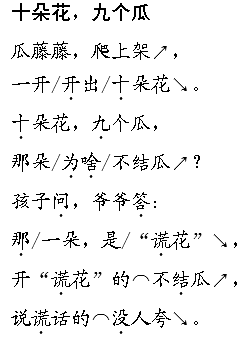 十朵花，九个瓜
瓜藤藤，爬上架↗，
一开/开出/十朵花↘。
十朵花，九个瓜，
那朵/为啥/不结瓜↗？
孩子问，爷爷答：
那/一朵，是/“谎花”↘，
开“谎花”的⌒不结瓜↗，
说谎话的⌒没人夸↘。